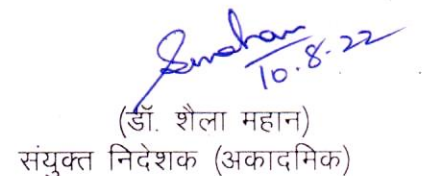 10.8.22
(डॉ. शैला महान)
संयुक्त निदेशक (अकादमिक)